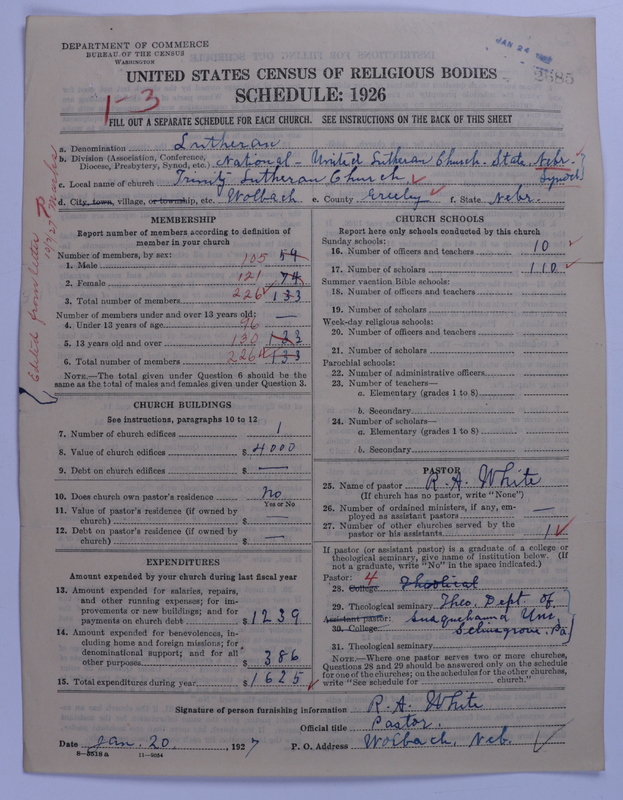 DEPARTMENT OF COMMERCE
BUREAU OF THE CENSUS
WASHINGTON
JAN 24
UNITED STATES CENSUS OF RELIGIOUS BODIES
SCHEDULE: 1926
1-3
FILL OUT A SEPARATE SCHEDULE FOR EACH CHURCH. SEE INSTRUCTIONS ON THE BACK OF THIS SHEET
a. Denomination Lutheran
b. Division (Association, Conference, Diocese, Presbytery, Synod, etc.) National - United Lutheran Church. State. Nebr. Synod
c. Local name of church Trinity Lutheran Church
d. City, town, village, or township, etc. Wolbach e. County Greeley f. State Nebr.
MEMBERSHIP
Report number of members according to definition of
member in your church
Number of members, by sex:
1. Male 105 54
2. Female 121 74
3. Total number of members 226 133
Number of members under and over 13 years old:
4. Under 13 years of age 96 —
5. 13 years old and over 130 133
6. Total number of members 226 133
NOTE.—The total given under Question 6 should be
same as the total of males and females given under Question 3.
CHURCH BUILDINGS
See instructions, paragraphs 10 to 12
7. Number of church edifices 1
8. Value of church edifices $ 4000
9. Debt on church edifices $ —
10. Does church own pastor's residence No
Yes or No
11. Value of pastor's residence (if owned by
church) $ —
12. Debt on pastor's residence (if owned by
church) $ —
EXPENDITURES
Amount expended by your church during last fiscal year
13. Amount expended for salaries, repairs,
and other running expenses; for im-
provements or new buildings; and for
payments on church debt $ 1239
14. Amount expended for benevolences, in-
cluding home and foreign missions; for
denominational support; and for all
other purposes $ 386
15. Total expenditures during year $ 1625
CHURCH SCHOOLS
Report here only schools conducted by this church
Sunday schools:
16. Number of officers and teachers 10
17. Number of scholars 110
Summer vacation Bible schools:
18. Number of officers and teachers
19. Number of scholars
Week-day religious schools:
20. Number of officers and teachers
21. Number of scholars
Parochial schools:
22. Number of administrative officers
23. Number of teachers—
a. Elementary (grades 1 to 8)
b. Secondary
24. Number of scholars—
a. Elementary (grades 1 to 8)
b. Secondary
PASTOR
25. Name of pastor R. A. White
(If church has no pastor, write "None")
26. Number of ordained ministers, if any, em-
ployed as assistant pastors —
27. Number of other churches served by the
pastor or his assistants 1
If pastor (or assistant pastor) is a graduate of a college or
theological seminary, give name of institution below. (If
not a graduate, write "No" in the space indicated.)
Pastor: 4
28. College
29. Theological seminary Theo. Dept of
Assistant pastor: Susquehanna Uni.
30. College Selinsgrove. Pa
31. Theological seminary
NOTE.—Where one pastor serves two or more churches,
Questions 28 and 29 should be answered only on the schedule
for one of the churches; on the schedules for the other churches,
write "See schedule for church."
Signature of person furnishing information R. A. White
Official title Pastor.
Date Jan. 20, 1927 P. O. Address Wolbach, Neb.
8-5518a 11-9054